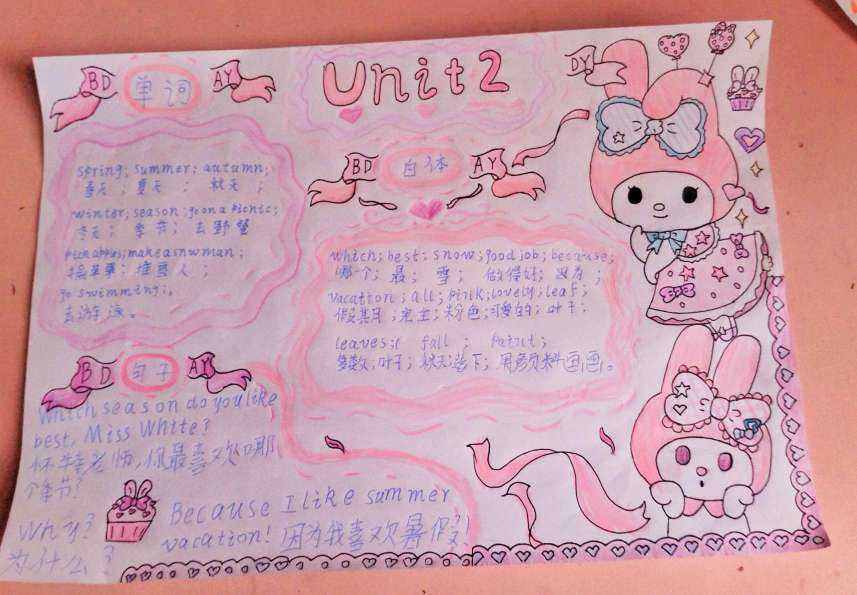 Unit 2
BD 单词 AY
DY
spring; summer; autumn;
春天；夏天；秋天；
winter; season; goona picnic;
冬天；季节；去野餐
pick apples; makeasnwman;
摘苹果；堆雪人；
go swimming;。
去游泳。
BD 白体 AY
which; best; snow; good job; because;
哪个；最；雪；做得好；因为；
vacation; all; pink; lovely; leaf;
假期；完全；粉色；可爱的；叶子；
leaves; fall ;
复数；叶子；秋天；落下；用颜料画画。
BD 句子 AY
Which season do you like
best, Miss White?
怀特老师，你最喜欢哪
个季节？
Why?
为什么？
Because I like summer
vacation! 因为我喜欢暑假！